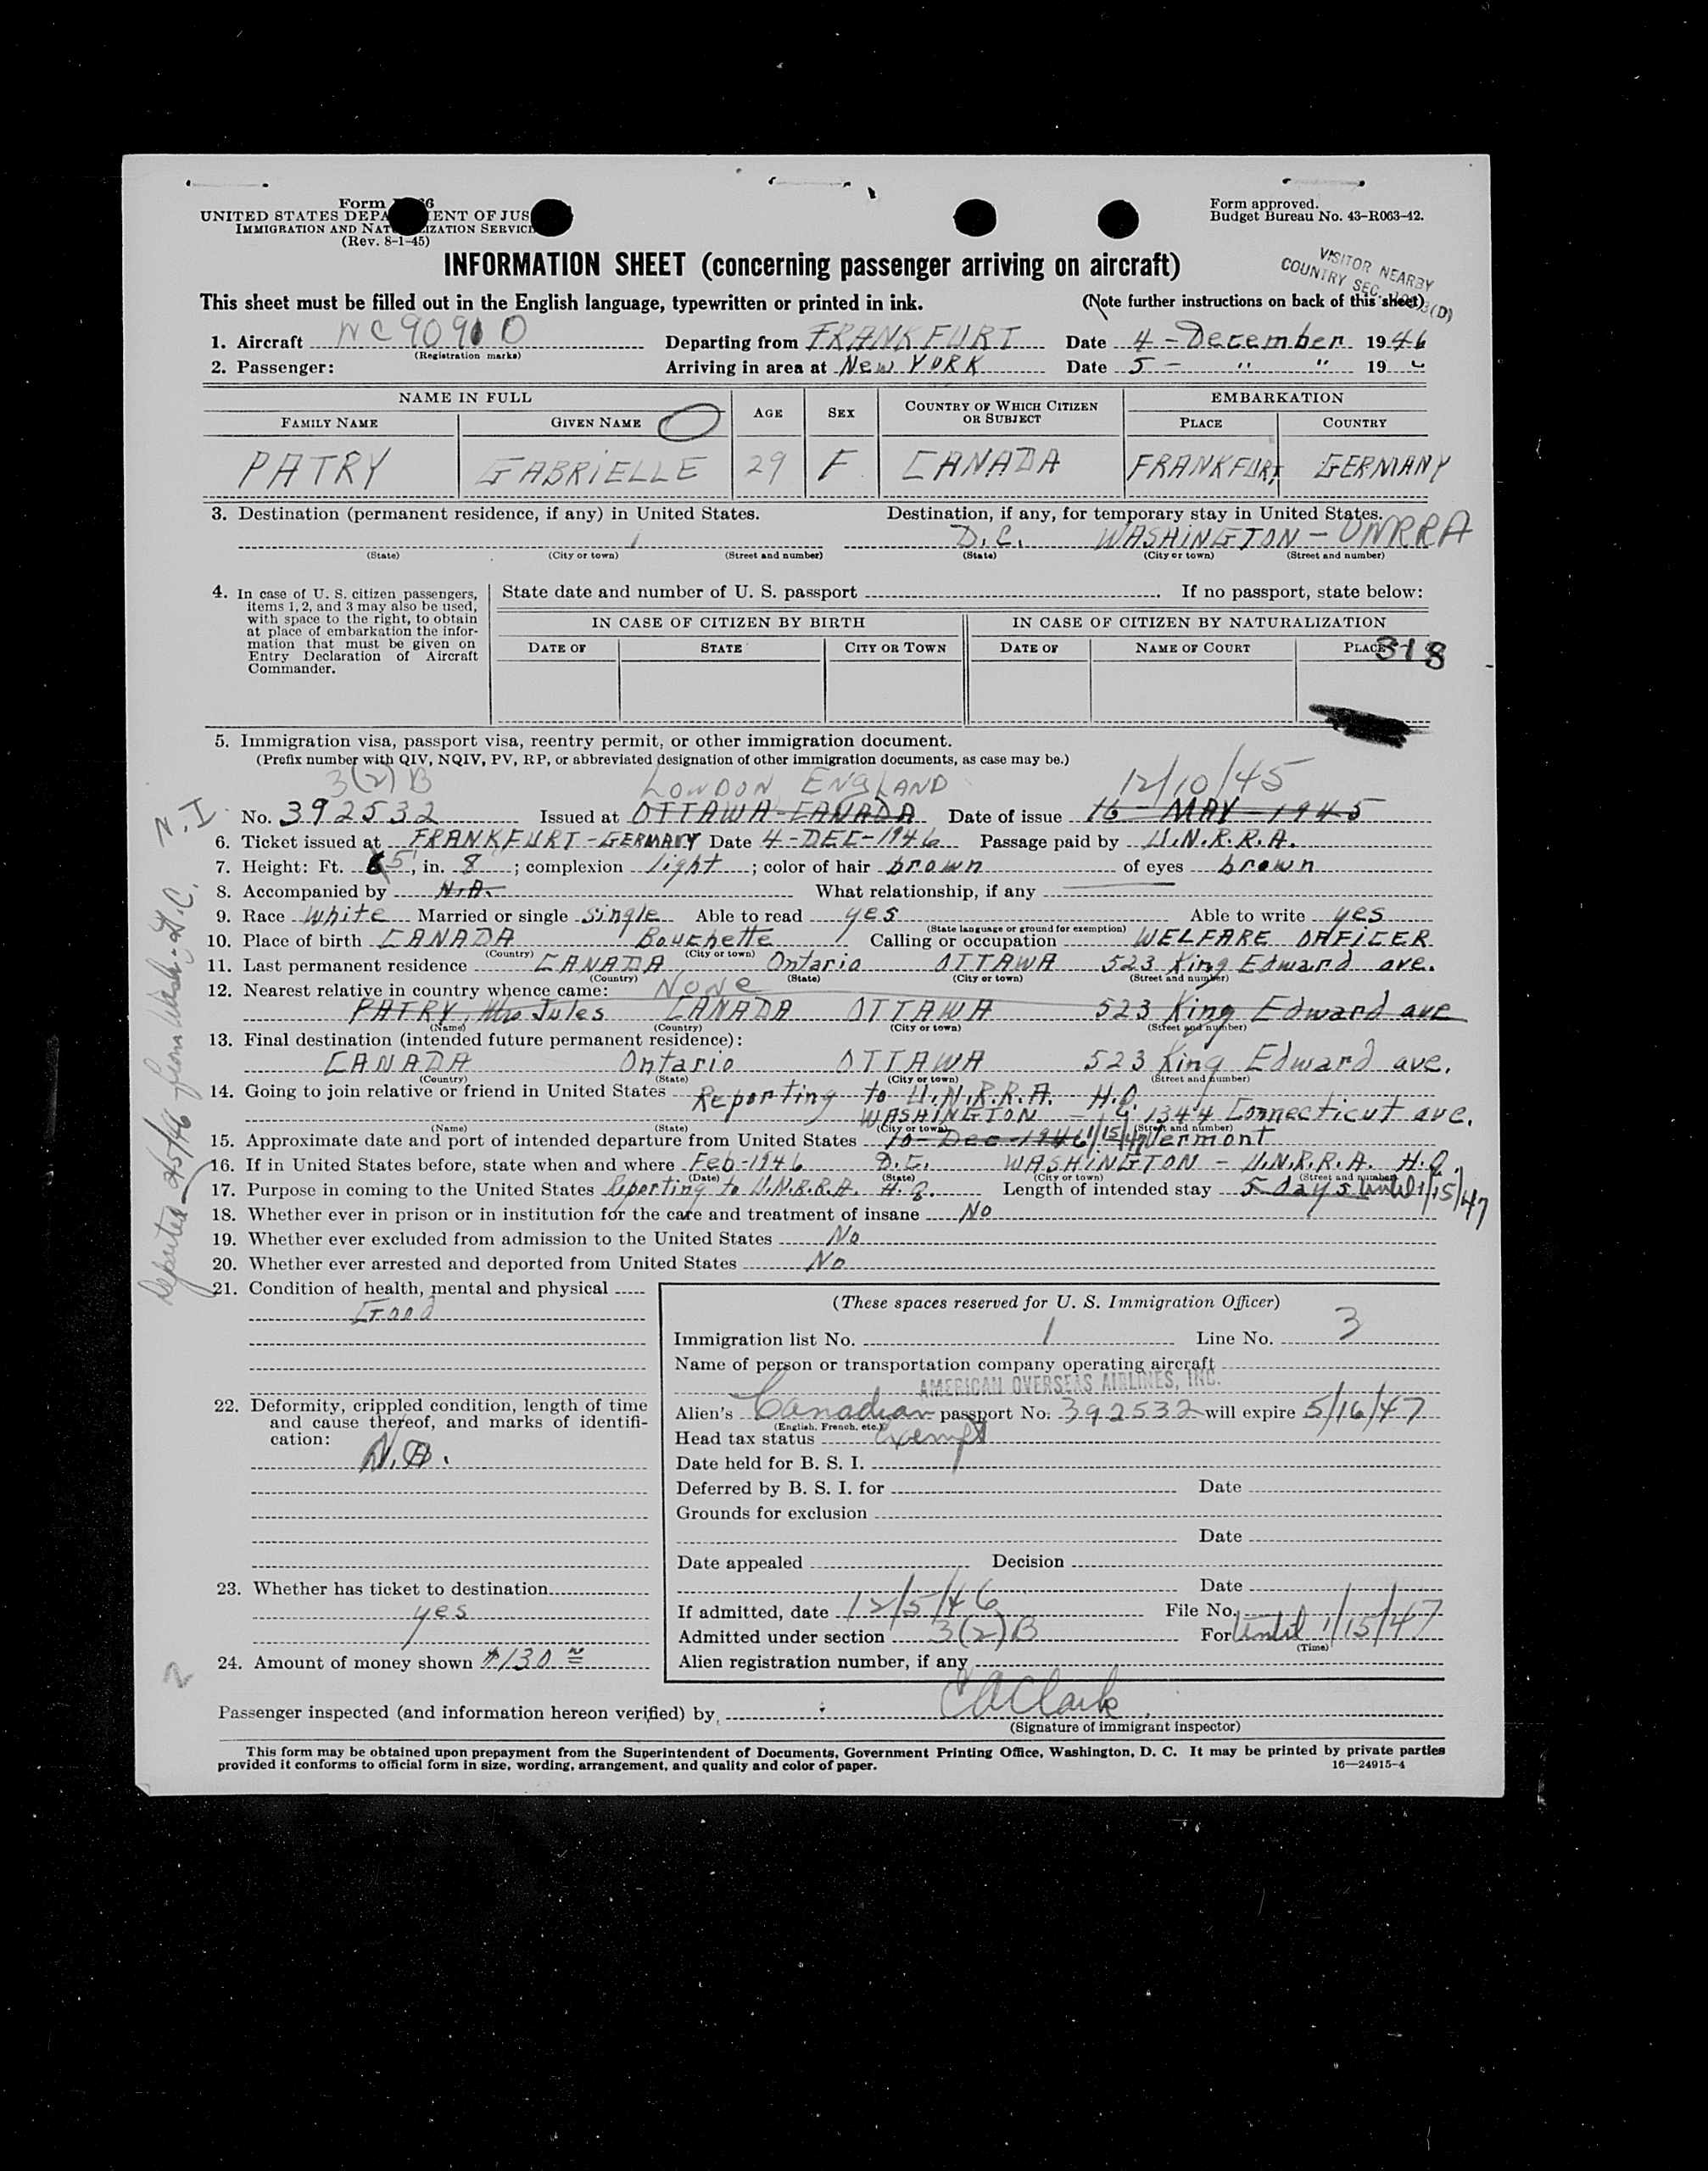 Form
UNITED STATES DEPARTMENT OF JUSTICE
IMMIGRATION AND NATURALIZATION SERVICE
(Rev. 8-1-45)
Form approved.
Budget Bureau No. 43-R063-42.
INFORMATION SHEET (concerning passenger arriving on aircraft)
VISITOR NEARBY
COUNTRY SEC.
This sheet must be filled out in the English language, typewritten or printed in ink. (Note further instructions on back of this sheet)
1. Aircraft NC90910 Departing from FRANKFURT Date 4-December 1946
(Registration marks)
2. Passenger: Arriving in area at NEW YORK Date 5 - " " 19
NAME IN FULL AGE SEX COUNTRY OF WHICH CITIZEN OR SUBJECT EMBARKATION
FAMILY NAME GIVEN NAME PLACE COUNTRY
PATRY GABRIELLE 29 F CANADA FRANKFURT GERMANY
3. Destination (permanent residence, if any) in United States. Destination, if any, for temporary stay in United States.
D.C. WASHINGTON - UNRRA
(State) (City or town) (Street and number) (State) (City or town) (Street and number)
4. In case of U. S. citizen passengers, items 1, 2, and 3 may also be used, with space to the right, to obtain at place of embarkation the information that must be given on Entry Declaration of Aircraft Commander.
State date and number of U. S. passport . If no passport, state below:
IN CASE OF CITIZEN BY BIRTH IN CASE OF CITIZEN BY NATURALIZATION
DATE OF STATE CITY OR TOWN DATE OF NAME OF COURT PLACE
318
5. Immigration visa, passport visa, reentry permit, or other immigration document.
(Prefix number with QIV, NQIV, PV, RP, or abbreviated designation of other immigration documents, as case may be.)
3(2)B LONDON ENGLAND 12/10/45
No. 392532 Issued at OTTAWA-CANADA Date of issue 16 - MAY - 1945
6. Ticket issued at FRANKFURT-GERMANY Date 4-DEC-1946 Passage paid by U.N.R.R.A.
7. Height: Ft. 5', in. 8; complexion light; color of hair brown of eyes brown
8. Accompanied by N.A. What relationship, if any
9. Race white Married or single single Able to read yes Able to write yes
(State language or ground for exemption)
10. Place of birth CANADA Bouchette Calling or occupation WELFARE OFFICER
(Country) (City or town)
11. Last permanent residence CANADA Ontario OTTAWA 523 King Edward ave.
(Country) (State) (City or town) (Street and number)
12. Nearest relative in country whence came: NONE
PATRY, Mrs Jules CANADA OTTAWA 523 King Edward ave
(Name) (Country) (City or town) (Street and number)
13. Final destination (intended future permanent residence):
CANADA Ontario OTTAWA 523 King Edward ave.
(Country) (State) (City or town) (Street and number)
14. Going to join relative or friend in United States Reporting to U.N.R.R.A. H.Q.
WASHINGTON - 1344 Connecticut ave.
(Name) (State) (City or town) (Street and number)
15. Approximate date and port of intended departure from United States 10-Dec-1946 1/15/47 Vermont
16. If in United States before, state when and where Feb-1946 D.C. WASHINGTON - U.N.R.R.A. H.Q.
(Date) (State) (City or town) (Street and number)
17. Purpose in coming to the United States Reporting to U.N.R.R.A. H.Q. Length of intended stay 5 days until 1/15/47
18. Whether ever in prison or in institution for the care and treatment of insane No
19. Whether ever excluded from admission to the United States No
20. Whether ever arrested and deported from United States No
21. Condition of health, mental and physical
Good
22. Deformity, crippled condition, length of time and cause thereof, and marks of identification:
N.A.
23. Whether has ticket to destination
yes
24. Amount of money shown $130
(These spaces reserved for U. S. Immigration Officer)
Immigration list No. 1 Line No. 3
Name of person or transportation company operating aircraft
AMERICAN OVERSEAS AIRLINES, INC.
Alien's Canadian passport No. 392532 will expire 5/16/47
(English, French, etc.)
Head tax status exempt
Date held for B. S. I.
Deferred by B. S. I. for Date
Grounds for exclusion
Date
Date appealed Decision
Date
If admitted, date 12/5/46 File No.
Admitted under section 3(2)B For Until 1/15/47
(Time)
Alien registration number, if any
Passenger inspected (and information hereon verified) by C A Clark
(Signature of immigrant inspector)
This form may be obtained upon prepayment from the Superintendent of Documents, Government Printing Office, Washington, D. C. It may be printed by private parties
provided it conforms to official form in size, wording, arrangement, and quality and color of paper. 16—24915-4
N.I
2